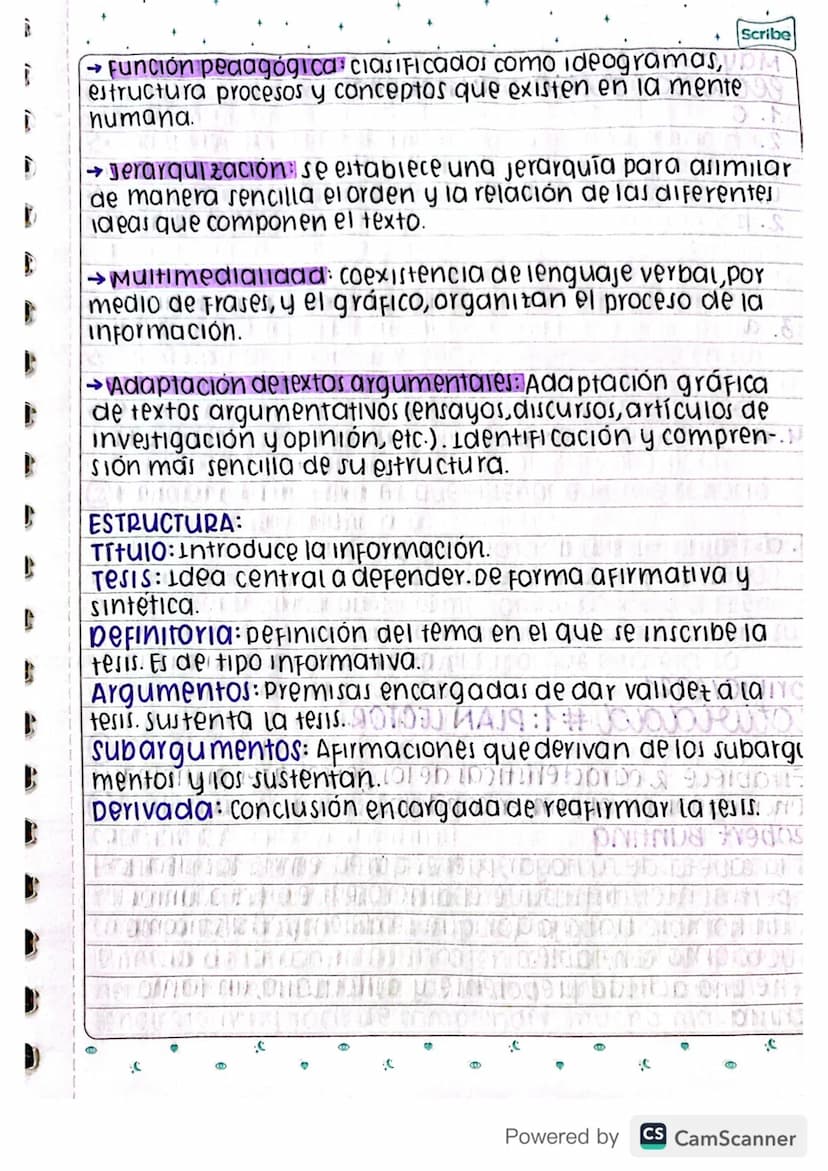 Scribe
→ Función pedagógica: clasificados como ideogramas,
estructura procesos y conceptos que existen en la mente
humana.
→ Jerarquización: se establece una jerarquía para asimilar
de manera sencilla el orden y la relación de las diferentes
ideas que componen el texto.
→ Multimedialidad: coexistencia de lenguaje verbal, por
medio de frases, y el gráfico, organizan el proceso de la
información.
→ Adaptación de textos argumentales: Adaptación gráfica
de textos argumentativos (ensayos, discursos, artículos de
investigación y opinión, etc.). Identificación y compren-
sión más sencilla de su estructura.
ESTRUCTURA:
Título: Introduce la información.
Tesis: Idea central a defender. De forma afirmativa y
sintética.
Definitoria: Definición del tema en el que se inscribe la
tesis. Es de tipo informativa.
Argumentos: Premisas encargadas de dar validez a la
tesis. Sustenta la tesis.
Subargumentos: Afirmaciones que derivan de los subargu
mentos y los sustentan.
Derivada: Conclusión encargada de reafirmar la tesis.
Powered by CS CamScanner